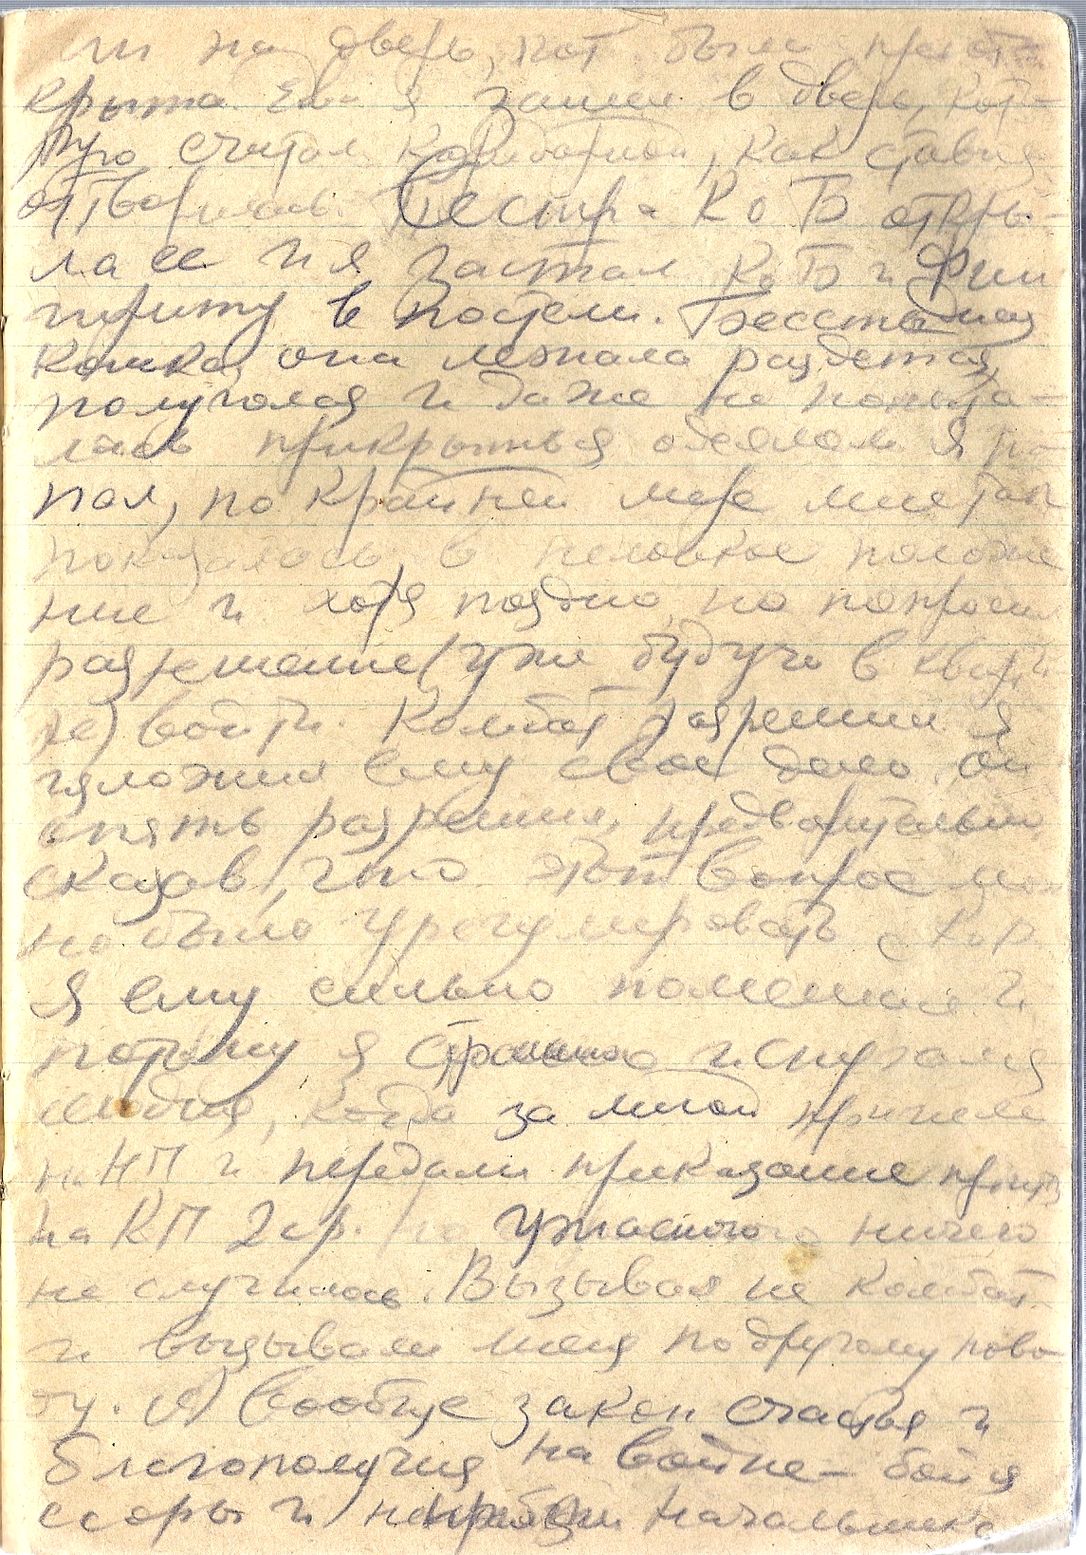 ли на дверь, кот была приот-
крыта. Едва я зашел в дверь, кото-
рую считал комбатной, как ставня
отворилась. Сестра Ко Б откры-
ла ее и я застал Ко Б и
в постели. Бесстыдная
кошка, она лежала раздетая,
полуголая и даже не попыта-
лась прикрыться одеялом. Я по-
пал, по крайней мере мне так
показалось, в неловкое положе
ние и хотя поздно, но попросил
разрешение (уже будучи в кварти-
ре) войти. Комбат разрешил. Я
изложил ему свое дело. Он
опять разрешил, предварительно
сказав, что этот вопрос мож
но было урегулировать с КоР.
Я ему сильно помешал и
потому я страшно испугался
сегодня, когда за мной пришли
на НП и передали приказание прийти
на КП 2 ср. Но ужасного ничего
не случилось. Вызывал не комбат
и вызывали меня по другому пово-
ду. А вообще закон счастья и
благополучия на войне – бойся
ссоры и начальника